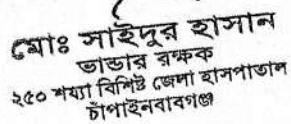 মোঃ সাইদুর হাসান
ভান্ডার রক্ষক
২৫০ শয্যা বিশিষ্ট জেলা হাসপাতাল
চাঁপাইনবাবগঞ্জ